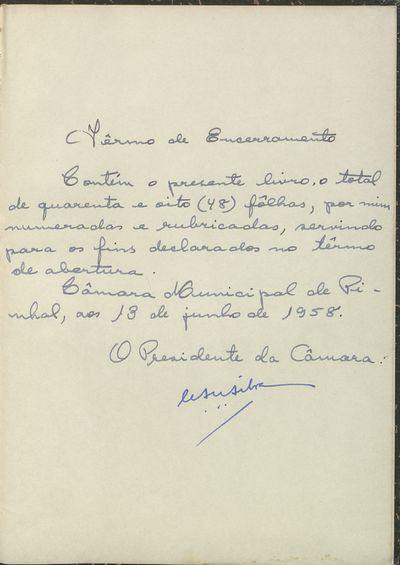 Têrmo de Encerramento
Contém o presente livro, o total
de quarenta e oito (48) fôlhas, por mim
numeradas e rubricadas, servindo
para os fins declarados no têrmo
de abertura.
Câmara Municipal de Pi-
nhal, aos 13 de junho de 1958.
O Presidente da Câmara: